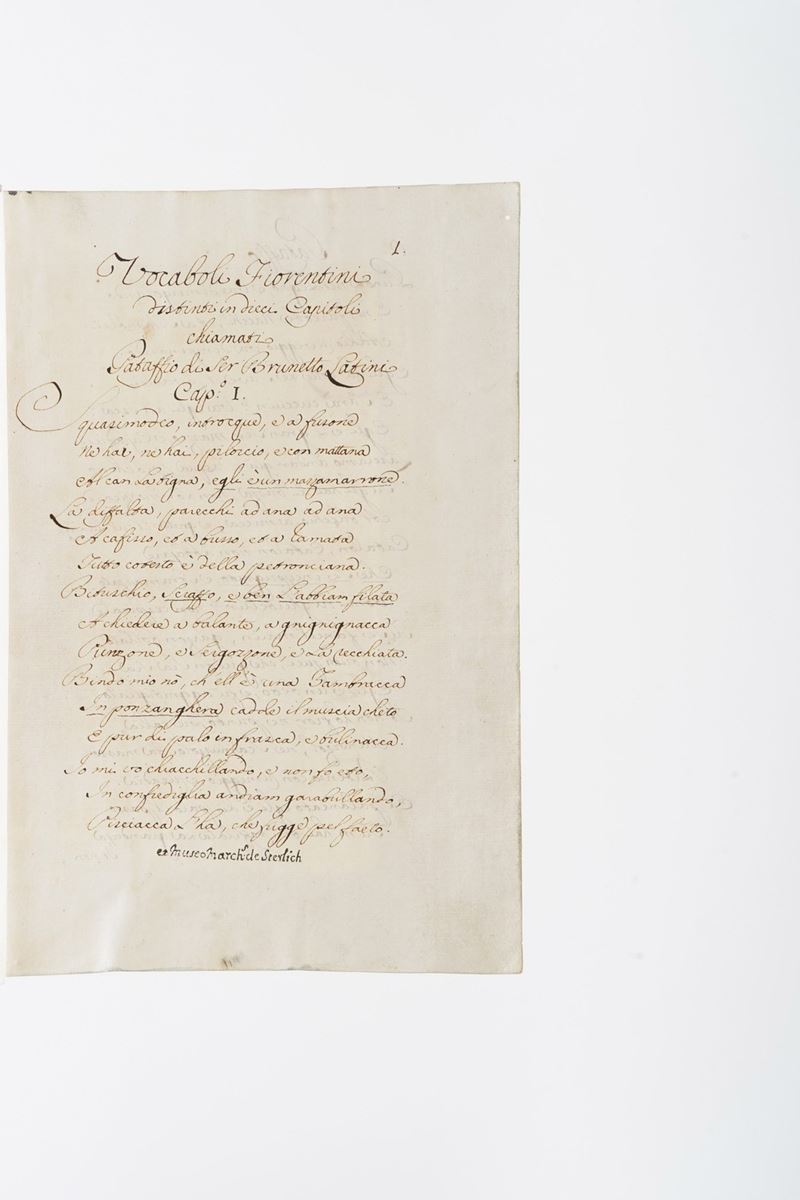 1.
Vocaboli Fiorentini
distinti in dieci Capitoli
chiamati
Pataffio di Ser Brunetto Latini
Cap.º I.
Squasimodeo, introcque, e a fusone
Ne hai, ne hai, pilorcio, e con mattana
Al can la tigna, egli è un mazzamarrone.
La difalta, parecchi ad ana ad ana
A cafisso, ed a busso, ed a ramata
Tutto cotesto è della petronciana.
Bituschio, Scraffo, e ben l'abbiam filata
A chiedere a balante, a gnignignacca
Punzone, e Sergozzone, e la recchiata.
Bindo mio nò, ch'ell'è una Zambracca
In ponzanghera cadde il muscia cheto
E pur di palo in frasca, e bulinacca.
Io mi vo chiacchillando, e non fo eto,
In confrediglia andiam garabullando,
Pisciacca l'ha, che fugge pel faeto.
ex Museo March.s de Sterlich